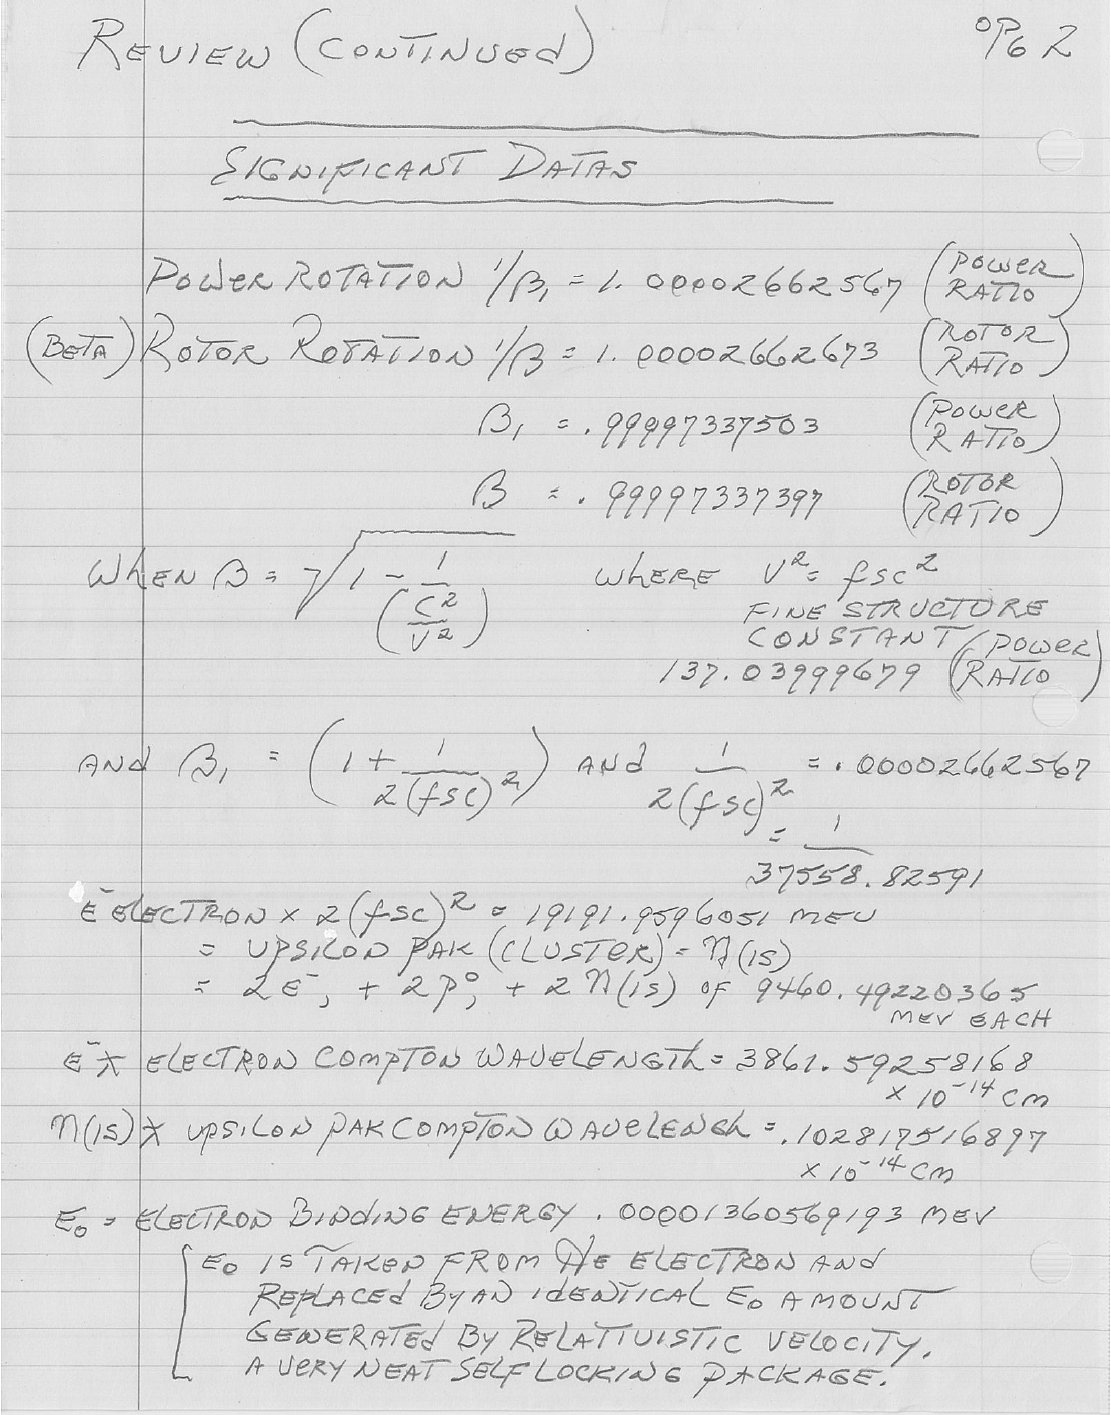 REVIEW (CONTINUED) OPG 2
SIGNIFICANT DATAS
POWER ROTATION 1/β₁ = 1.00002662567 (POWER RATIO)
(BETA) ROTOR ROTATION 1/β = 1.00002662673 (ROTOR RATIO)
β₁ = .99997337503 (POWER RATIO)
β = .99997337397 (ROTOR RATIO)
WHEN β = √(1 - 1/(C²/V²)) WHERE V² = fsc²
FINE STRUCTURE
CONSTANT
137.03999679 (POWER RATIO)
AND β₁ = (1 + 1/2(fsc)²) AND 1/2(fsc)² = .00002662567
= 1/37558.82591
E⁻ ELECTRON × 2(fsc)² = 19191.9596051 MEV
= UPSILON PAK (CLUSTER) = η(1S)
= 2e⁻, + 2p°, + 2η(1S) OF 9460.49220365
MEV EACH
e⁻ƛ ELECTRON COMPTON WAVELENGTH = 3861.59258168
× 10⁻¹⁴ CM
η(1S)ƛ UPSILON PAK COMPTON WAVELENGH = .102817516897
× 10⁻¹⁴ CM
E₀ = ELECTRON BINDING ENERGY .00001360569193 MEV
[E₀ IS TAKEN FROM THE ELECTRON AND
REPLACED BY AN IDENTICAL E₀ AMOUNT
GENERATED BY RELATIVISTIC VELOCITY.
A VERY NEAT SELF LOCKING PACKAGE.